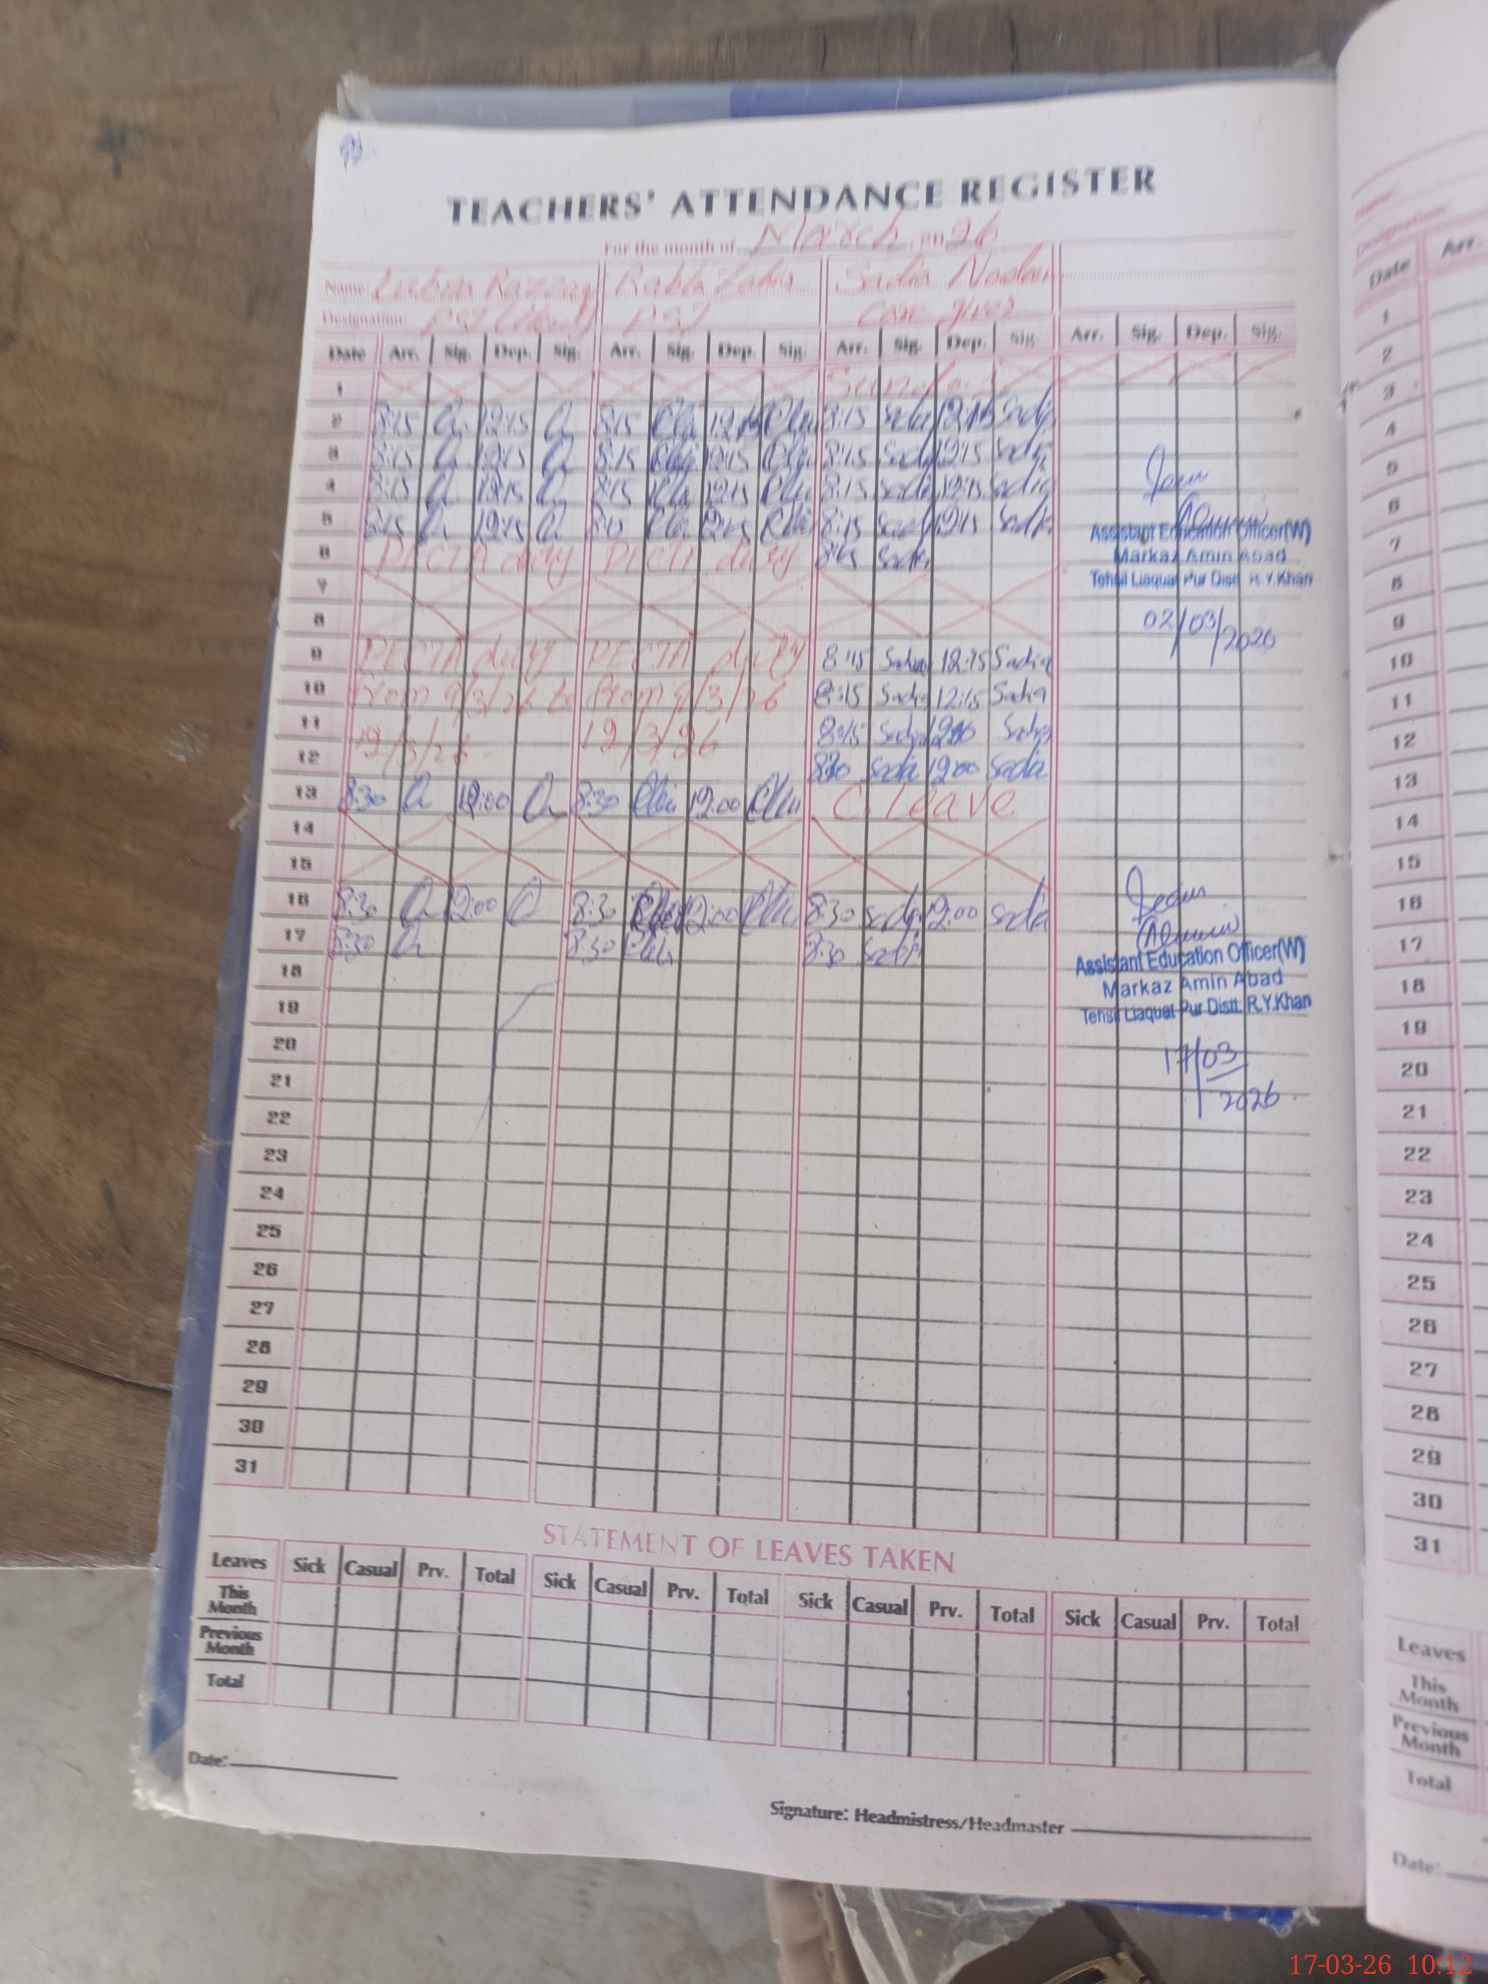 TEACHERS' ATTENDANCE REGISTER
For the month of March 26
Name Lubna Razzaq Rabia Sadia
Designation PST PST Care giver
Date Arr. Sig. Dep. Sig. Arr. Sig. Dep. Sig. Arr. Sig. Dep. Sig. Arr. Sig. Dep. Sig.
1 Sunday
2 8:15 12:15 8:15 12:15 8:15 Sadia 12:15 Sadia
3 8:15 12:15 8:15 12:15 8:15 Sadia 12:15 Sadia
4 8:15 12:15 8:15 12:15 8:15 Sadia 12:15 Sadia
5 8:15 12:15 12:15 8:15 Sadia 12:15 Sadia
Assistant Education Officer(W)
6 PECTA duty PECTA duty 8:15 Sadia
Markaz Amin Abad
7
Tehsil Liaquat Pur Distt. R.Y.Khan
8
02/03/2026
9 PECTA duty PECTA duty 8:15 Sadia 12:15 Sadia
10 from 9/3/26 to from 9/3/26 8:15 Sadia 12:15 Sadia
11 12/3/26 12/3/26 8:15 Sadia Sadia
12 8:30 Sadia 12:00 Sadia
13 8:30 12:00 8:30 12:00 C. Leave
14
15
16 8:30 12:00 8:30 12:00 8:30 Sadia 12:00 Sadia
17 8:30 8:30 8:30 Sadia
Assistant Education Officer(W)
18
Markaz Amin Abad
19
Tehsil Liaquat Pur Distt. R.Y.Khan
20
17/03
21
2026
22
23
24
25
26
27
28
29
30
31
STATEMENT OF LEAVES TAKEN
Leaves Sick Casual Prv. Total Sick Casual Prv. Total Sick Casual Prv. Total Sick Casual Prv. Total
This Month
Previous Month
Total
Date:
Signature: Headmistress/Headmaster
Date Arr.
1
2
3
4
5
6
7
8
9
10
11
12
13
14
15
16
17
18
19
20
21
22
23
24
25
26
27
28
29
30
31
Leaves
This Month
Previous Month
Total
Date:
17-03-26 10:12